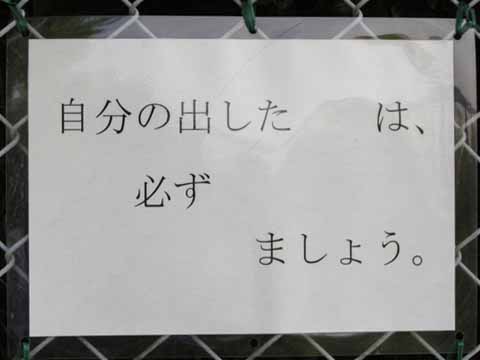 自分の出した　　は、
必ず
ましょう。